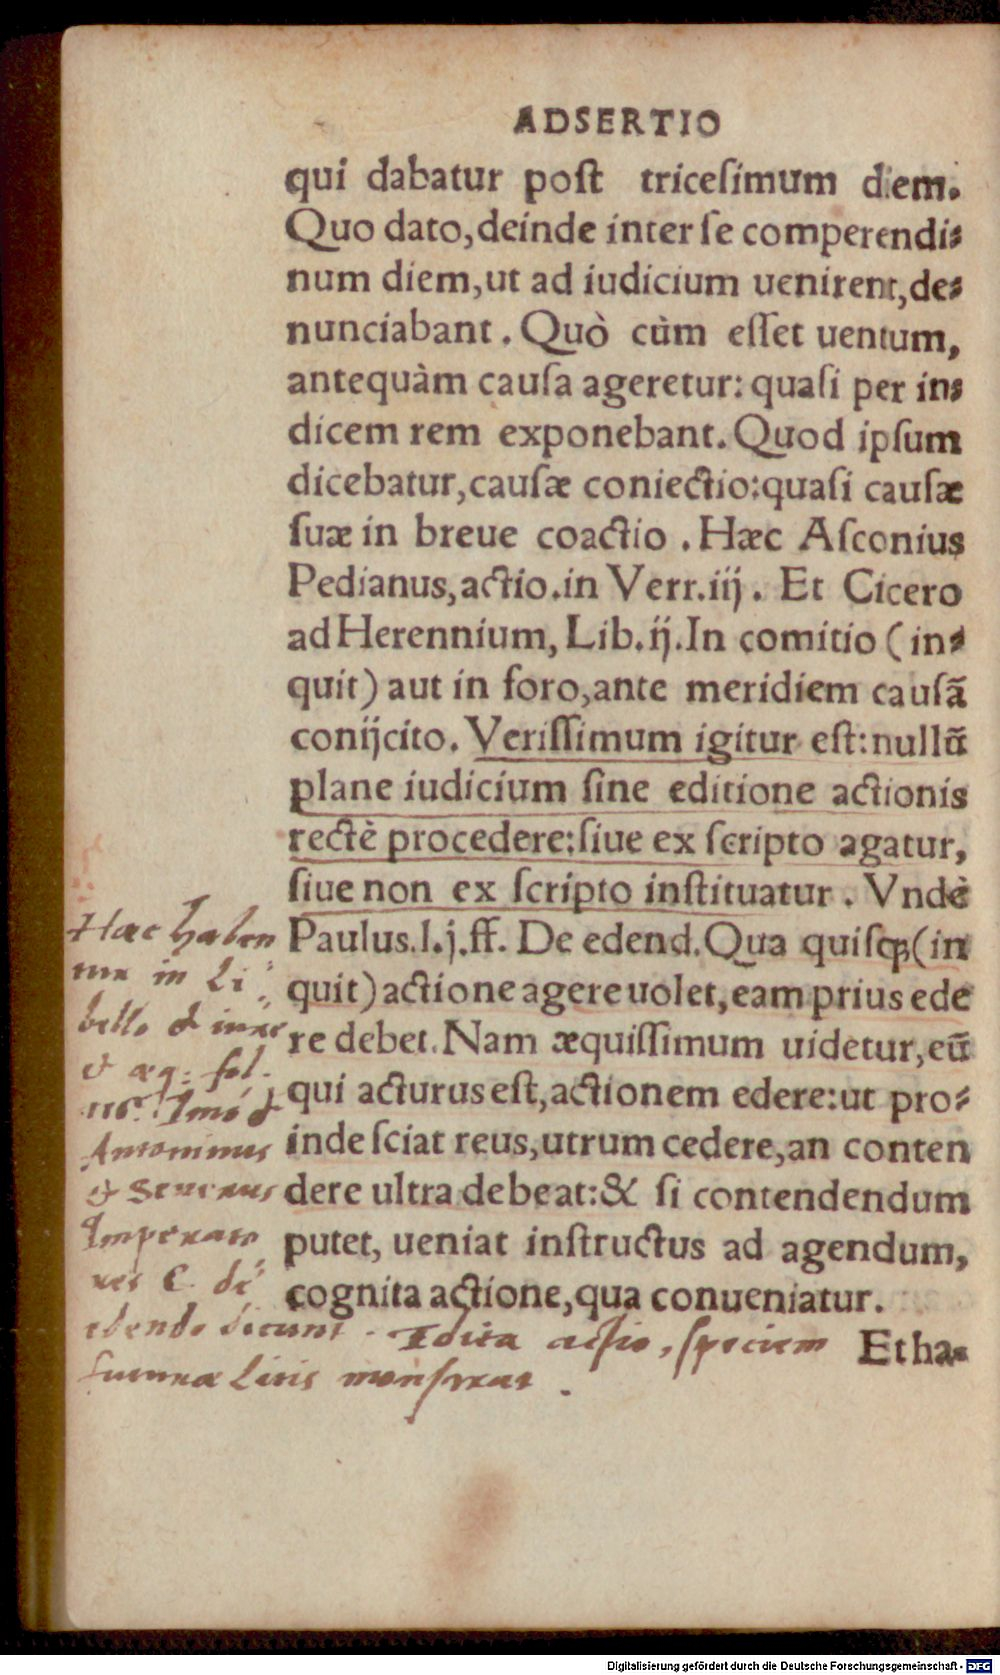 ADSERTIO
qui dabatur post tricesimum diem.
Quo dato, deinde inter se comperendi-
num diem, ut ad iudicium uenirent, de-
nunciabant. Quò cùm esset uentum,
antequàm causa ageretur: quasi per in-
dicem rem exponebant. Quod ipsum
dicebatur, causæ coniectio: quasi causæ
suæ in breue coactio. Hæc Asconius
Pedianus, actio. in Verr. iij. Et Cicero
ad Herennium, Lib. ij. In comitio (in-
quit) aut in foro, ante meridiem causã
conijcito. Verissimum igitur est: nullũ
plane iudicium sine editione actionis
rectè procedere: siue ex scripto agatur,
siue non ex scripto instituatur. Vndè
Paulus. l. j. ff. De edend. Qua quisq; (in
quit) actione agere uolet, eam prius ede
re debet. Nam æquissimum uidetur, eũ
qui acturus est, actionem edere: ut pro-
inde sciat reus, utrum cedere, an conten
dere ultra debeat: & si contendendum
putet, ueniat instructus ad agendum,
cognita actione, qua conueniatur.
Et ha-
Haec haben
tur in Li
bello & iure
& æq: fol.
116. Imó &
Antoninus
& Seuerus
Imperato
res C. de
edendo dicunt. Edita actio, speciem
futuræ Litis monstrat.
Digitalisierung gefördert durch die Deutsche Forschungsgemeinschaft - DFG